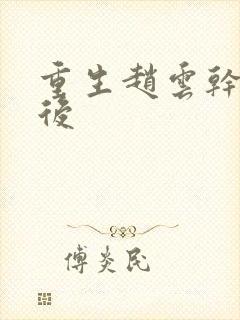 重生趙雲幹
後
傅炎民